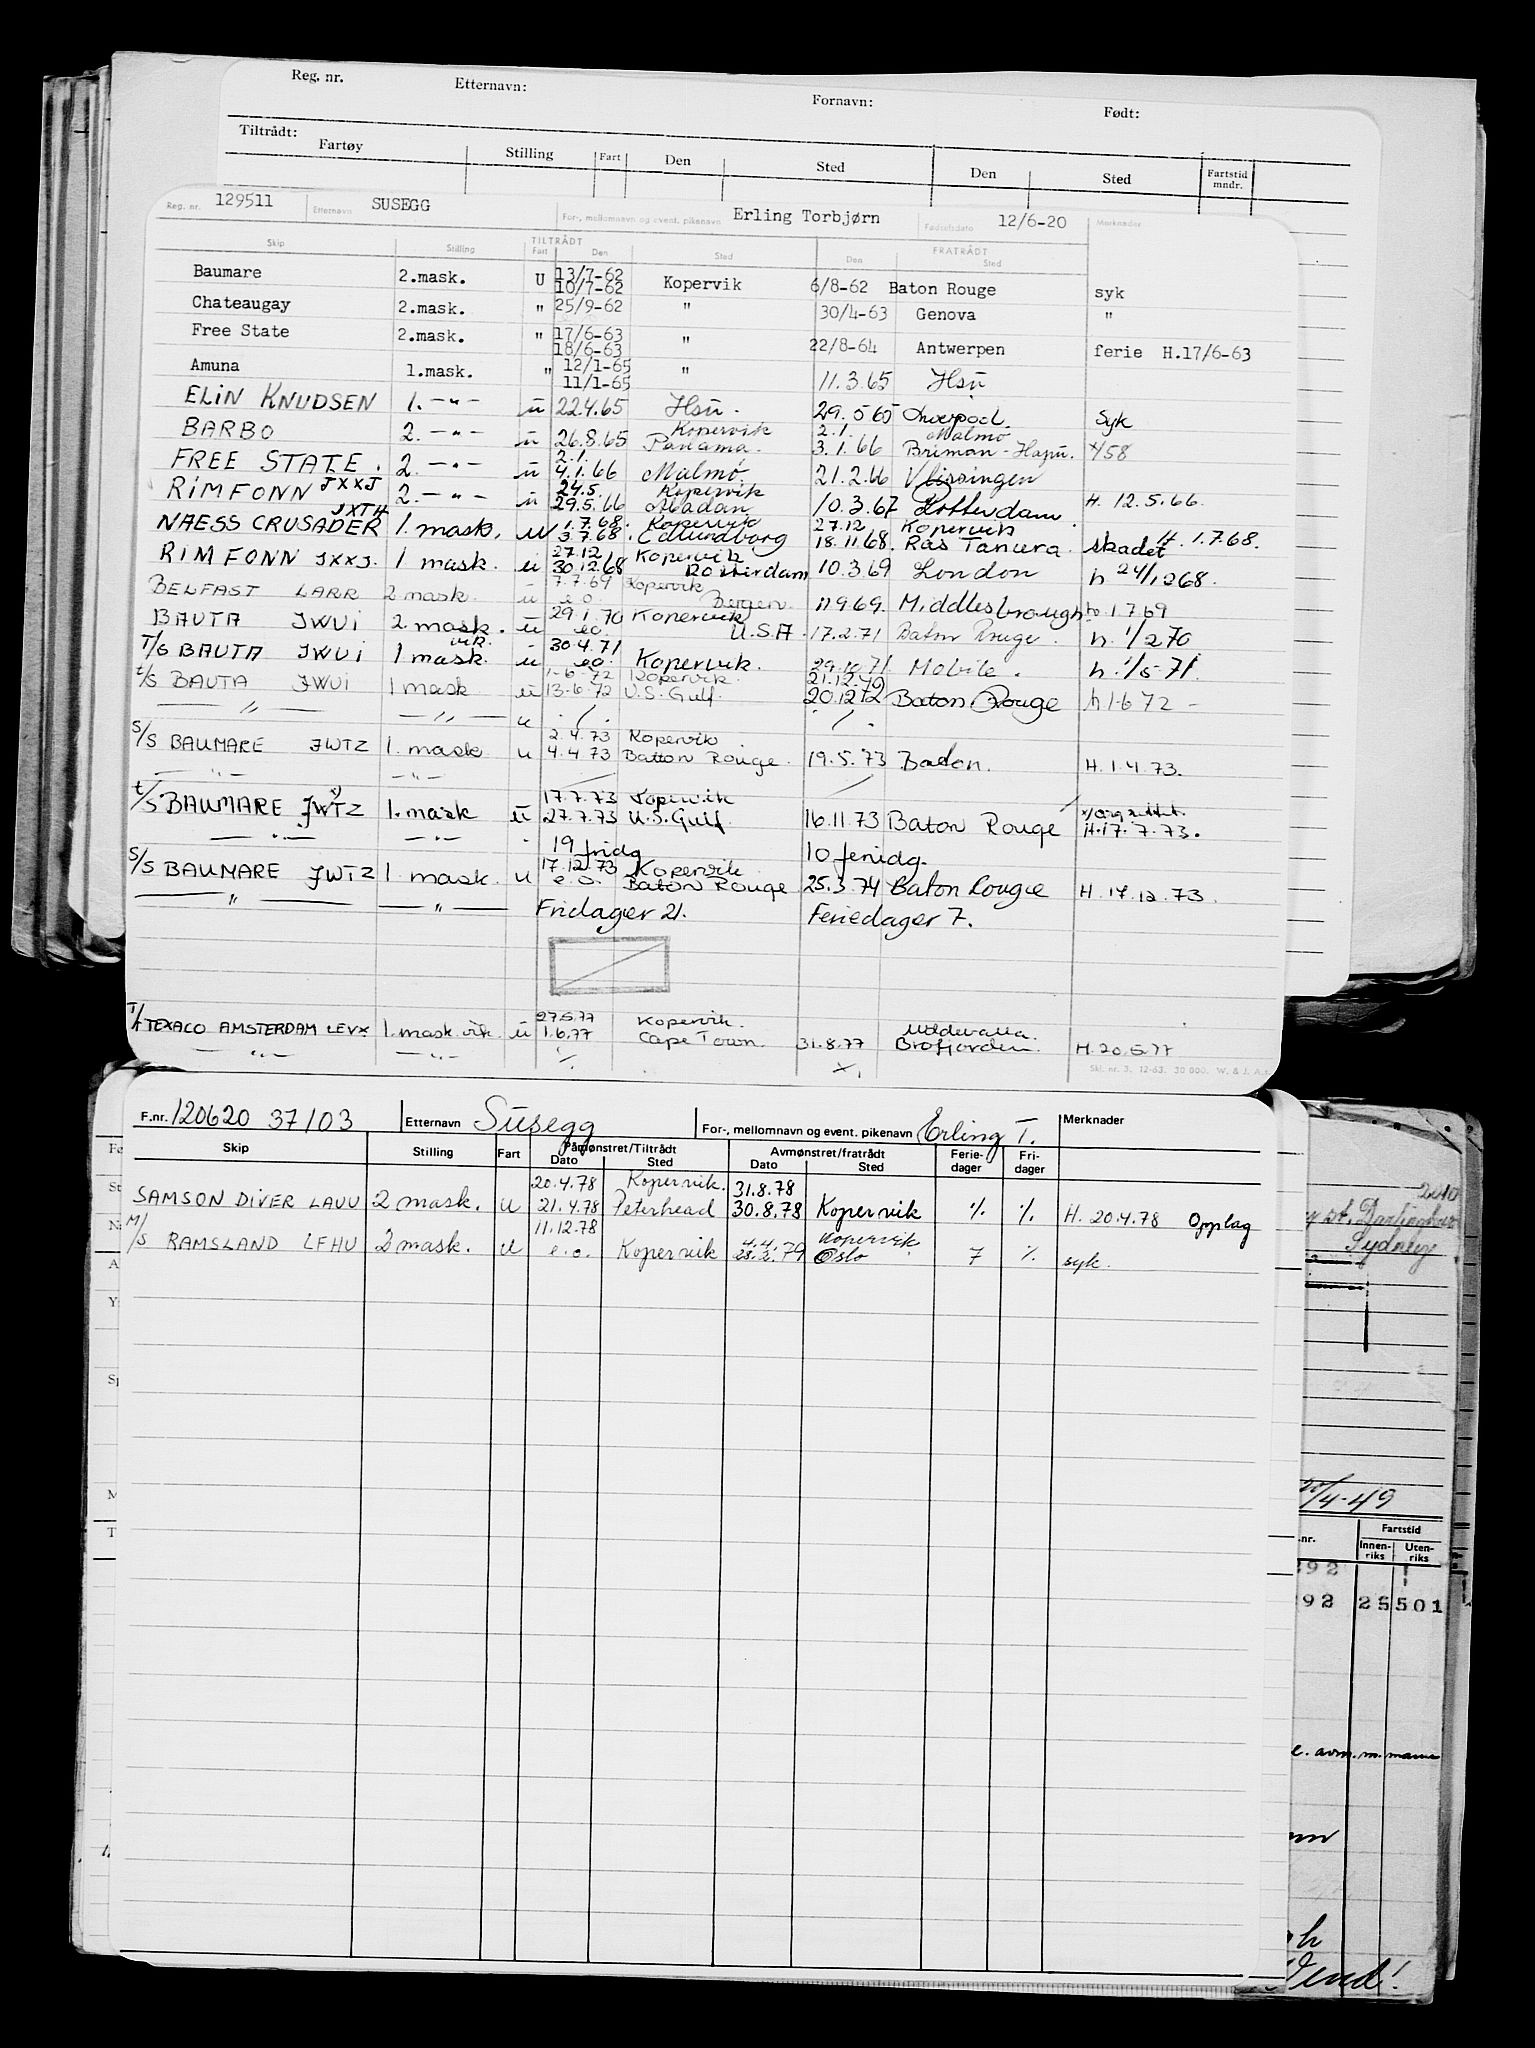 Reg. nr. Etternavn: Fornavn: Født:
Tiltrådt:
Fartøy Stilling Fart Den Sted Den Sted Fartstid mndr.
Reg. nr. 129511 Etternavn SUSEGG For-, mellomnavn og event. pikenavn Erling Torbjørn Fødselsdato 12/6-20 Merknader
TILTRÅDT FRATRÅDT
Skip Stilling Fart Den Sted Den Sted
13/7-62
Baumare 2.mask. U 10/7-62 Kopervik 6/8-62 Baton Rouge syk
Chateaugay 2.mask. " 25/9-62 " 30/4-63 Genova "
Free State 2.mask. " 17/6-63
18/6-63 " 22/8-64 Antwerpen ferie H.17/6-63
Amuna 1.mask. " 12/1-65 "
11/1-65 11.3.65 Hsü
ELIN KNUDSEN 1. -"- ü 22.4.65 Hsü. 29.5 65 Syk
Kopervik 2.1. Malmö
BARBO 2. -"- ü 26.8.65 Panama. 3.1.66 Briman - Hapü. 458
2.1.
FREE STATE. 2. -"- ü 4.1.66 Malmö 21.2.66 Vlissingen
24.5. Kopervik
RIMFONN JXXJ 2. -"- ü 29.5.66 Abadan 10.3.67 Rotterdam H. 12.5.66.
JXTH 1.7.68. Kopervik 27.12 Kopervik
NAESS CRUSADER 1. mask. u 3.7.68. 18.11.68. Ras Tanura. skadet H. 1.7.68.
27.12 Kopervik
RIMFONN JXXJ. 1 mask. ü 30.12.68 Rotterdam 10.3.69 London h 24/12 68.
7.7.69 Kopervik
BELFAST LARR 2 mask ü e.o. Bergen 11.9.69. Middlesbrough h. 1.7.69
29.1.70 Kopervik
BAUTA JWUI 2 mask. ü eo. U.S.A. 17.2.71 Baton Rouge. h. 1/2 70
vik. 30.4.71
T/S BAUTA JWUI 1 mask. ü eo. Kopervik. 29.10.71 Mobile. h. 1/5-71.
1-6-72 Kopervik. 21.12.72
t/s BAUTA JWUI 1 mask ü 13-6-72 U.S. Gulf. 20.12.72 Baton Rouge h 1-6 72 -
— " — — " — u ./. ./.
2.4.73 Kopervik
S/S BAUMARE JWTZ 1. mask u 4.4.73 Batton Rouge. 19.5.73 Baton. H. 1.4.73.
— " — — " —
17.7.73 Kopervik
t/s BAUMARE JWTZ 1. mask ü 27.7.73 U.S. Gulf. 16.11.73 Baton Rouge H.17.7.73.
— " — — " — 19 fridg 10 feridg.
17.12.73 Kopervik
S/S BAUMARE JWTZ 1 mask. u e.o. Baton Rouge 25.3.74 Baton Rouge H. 17.12.73.
— " — — " — Fridager 21. Feriedager 7.
27.5.77 Kopervik. Uddevalla.
T/T TEXACO AMSTERDAM LEVX 1. mask. vik. ü 1.6.77 Cape Town. 31.8.77 Brofjorden. H. 20.5.77
— " — — " — ./. ./.
Skl. nr. 3. 12-63. 30 000. W. & J. A.s.
F.nr. 120620 37103 Etternavn Susegg For-, mellomnavn og event. pikenavn Erling T. Merknader
Skip Stilling Fart Påmønstret/Tiltrådt Dato Sted Avmønstret/fratrådt Dato Sted Ferie-dager Fri-dager
20.4.78 Kopervik. 31.8.78
SAMSON DIVER LAUU 2 mask. u 21.4.78 Peterhead 30.8.78 Kopervik ./. ./. H. 20.4.78 Opplag
11.12.78 4.4. Kopervik
M/S RAMSLAND LFHU 2 mask. u e.o. Kopervik 28.2.79 Oslo 7 ./. syk.
Sydney
/4-49
.nr. Fartstid
Innen-riks Uten-riks
92
92 25501
e. avm. m. mann
Vend!